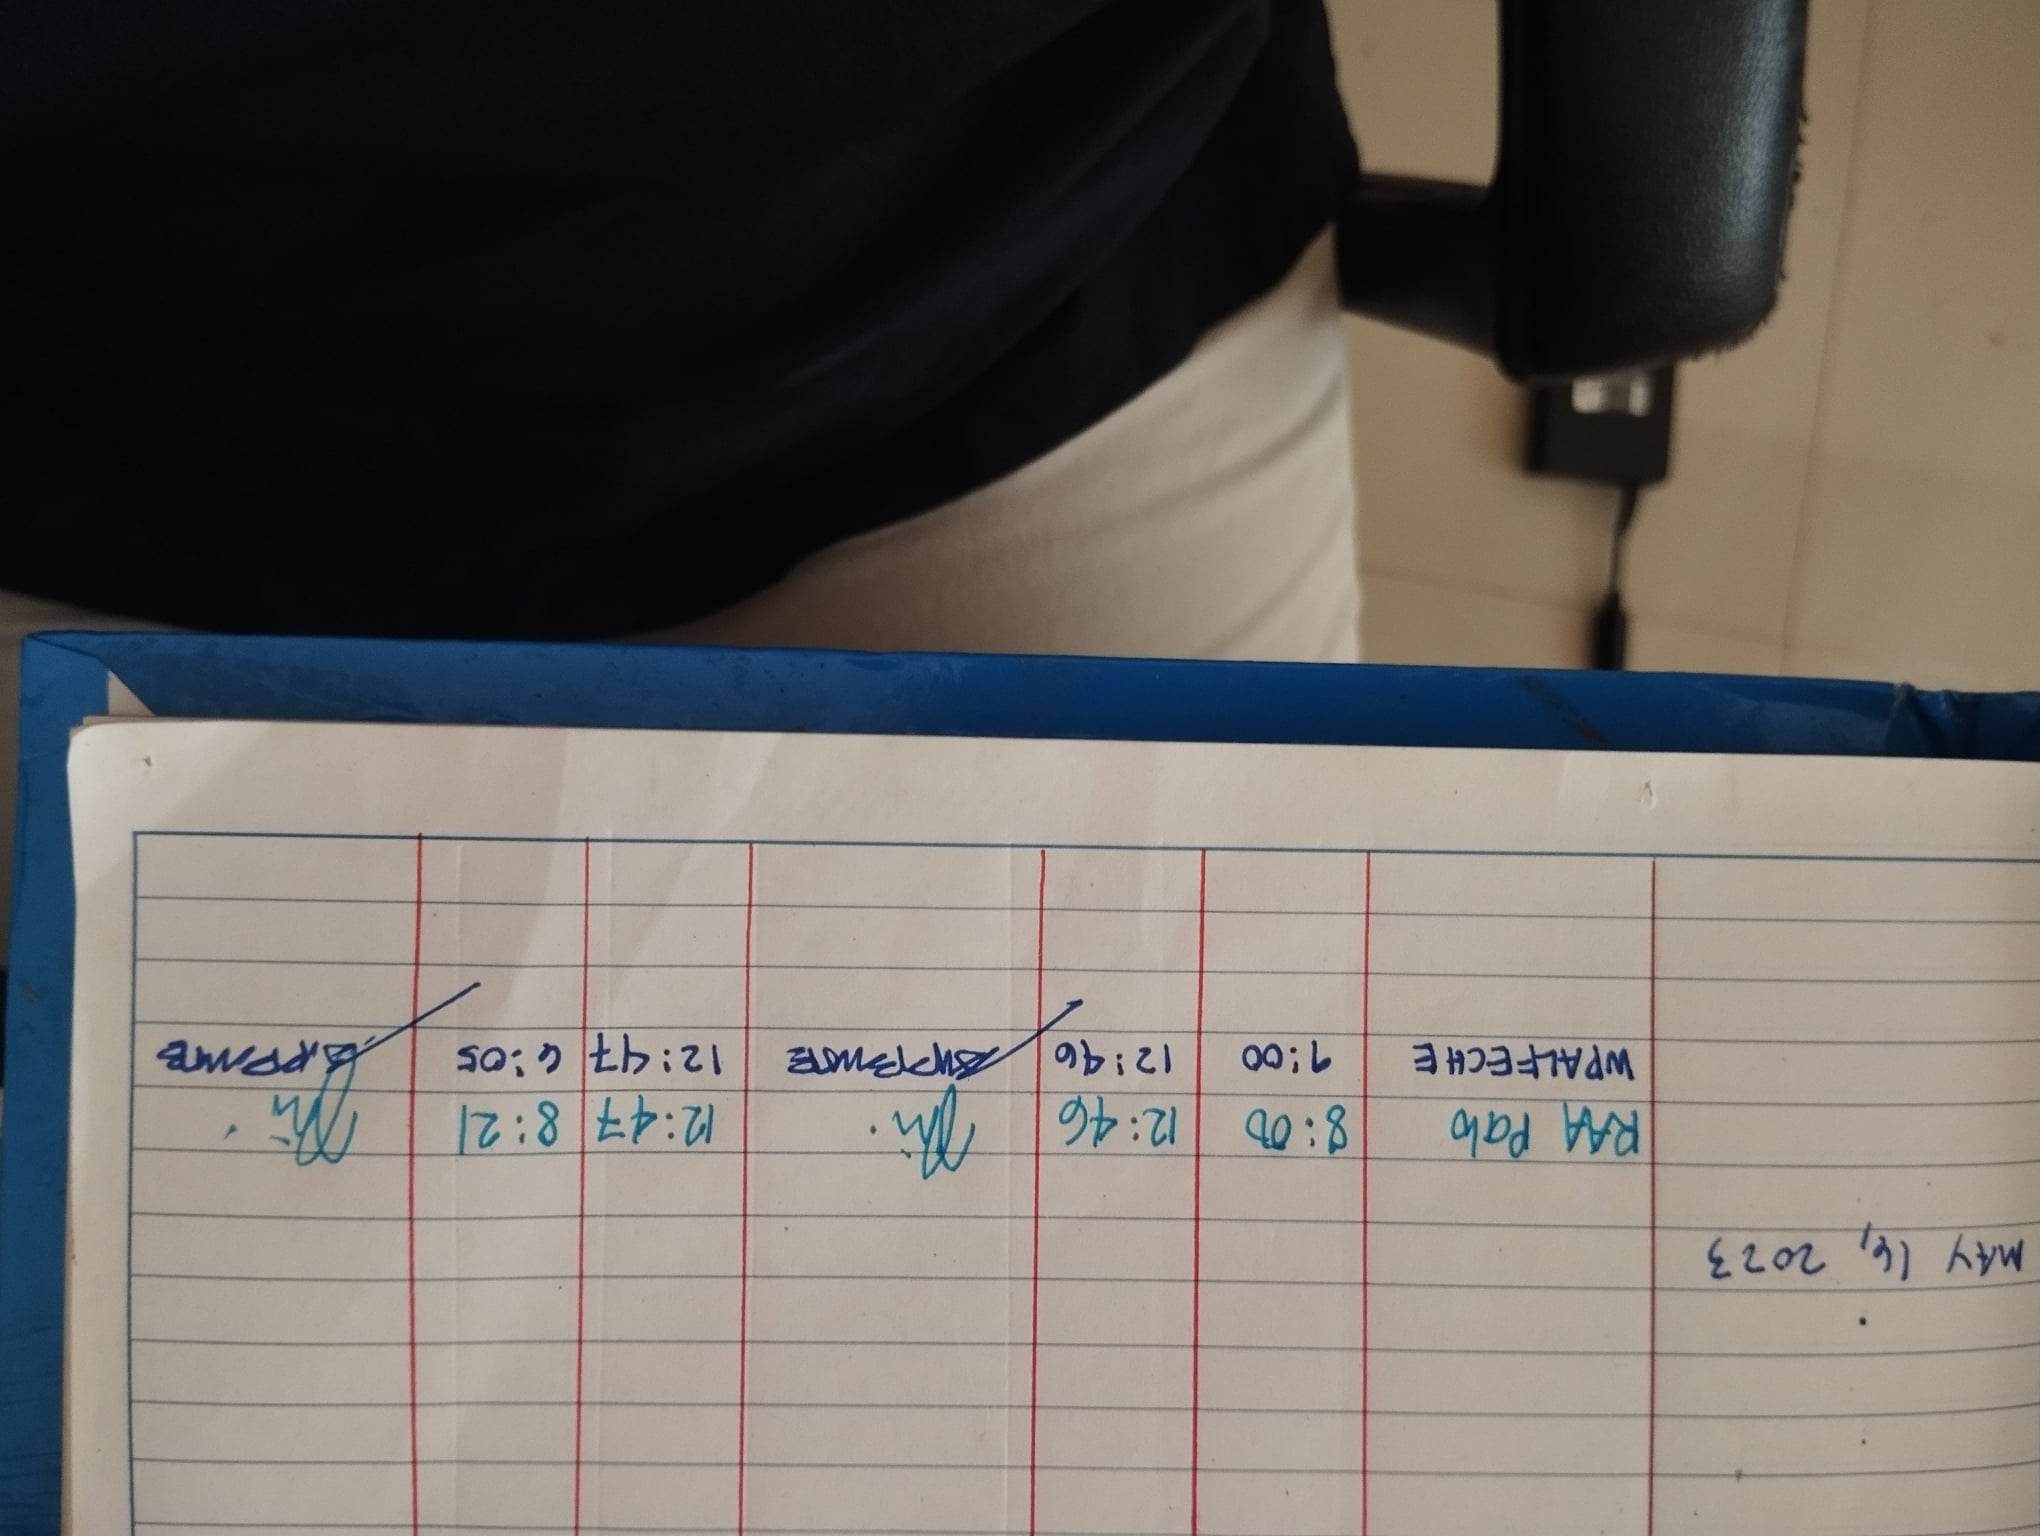 MAY 16, 2023
RAA Pab 8:00 12:46 12:47 8:21
WPALFECHE 9:00 12:46 12:47 6:05